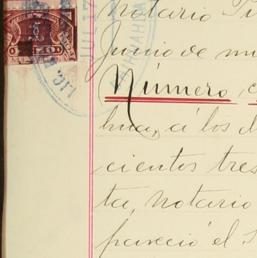 notario Pú
Junio de mi
Número c
hua, á los d
cientos tres
ta, notario
pareció el S